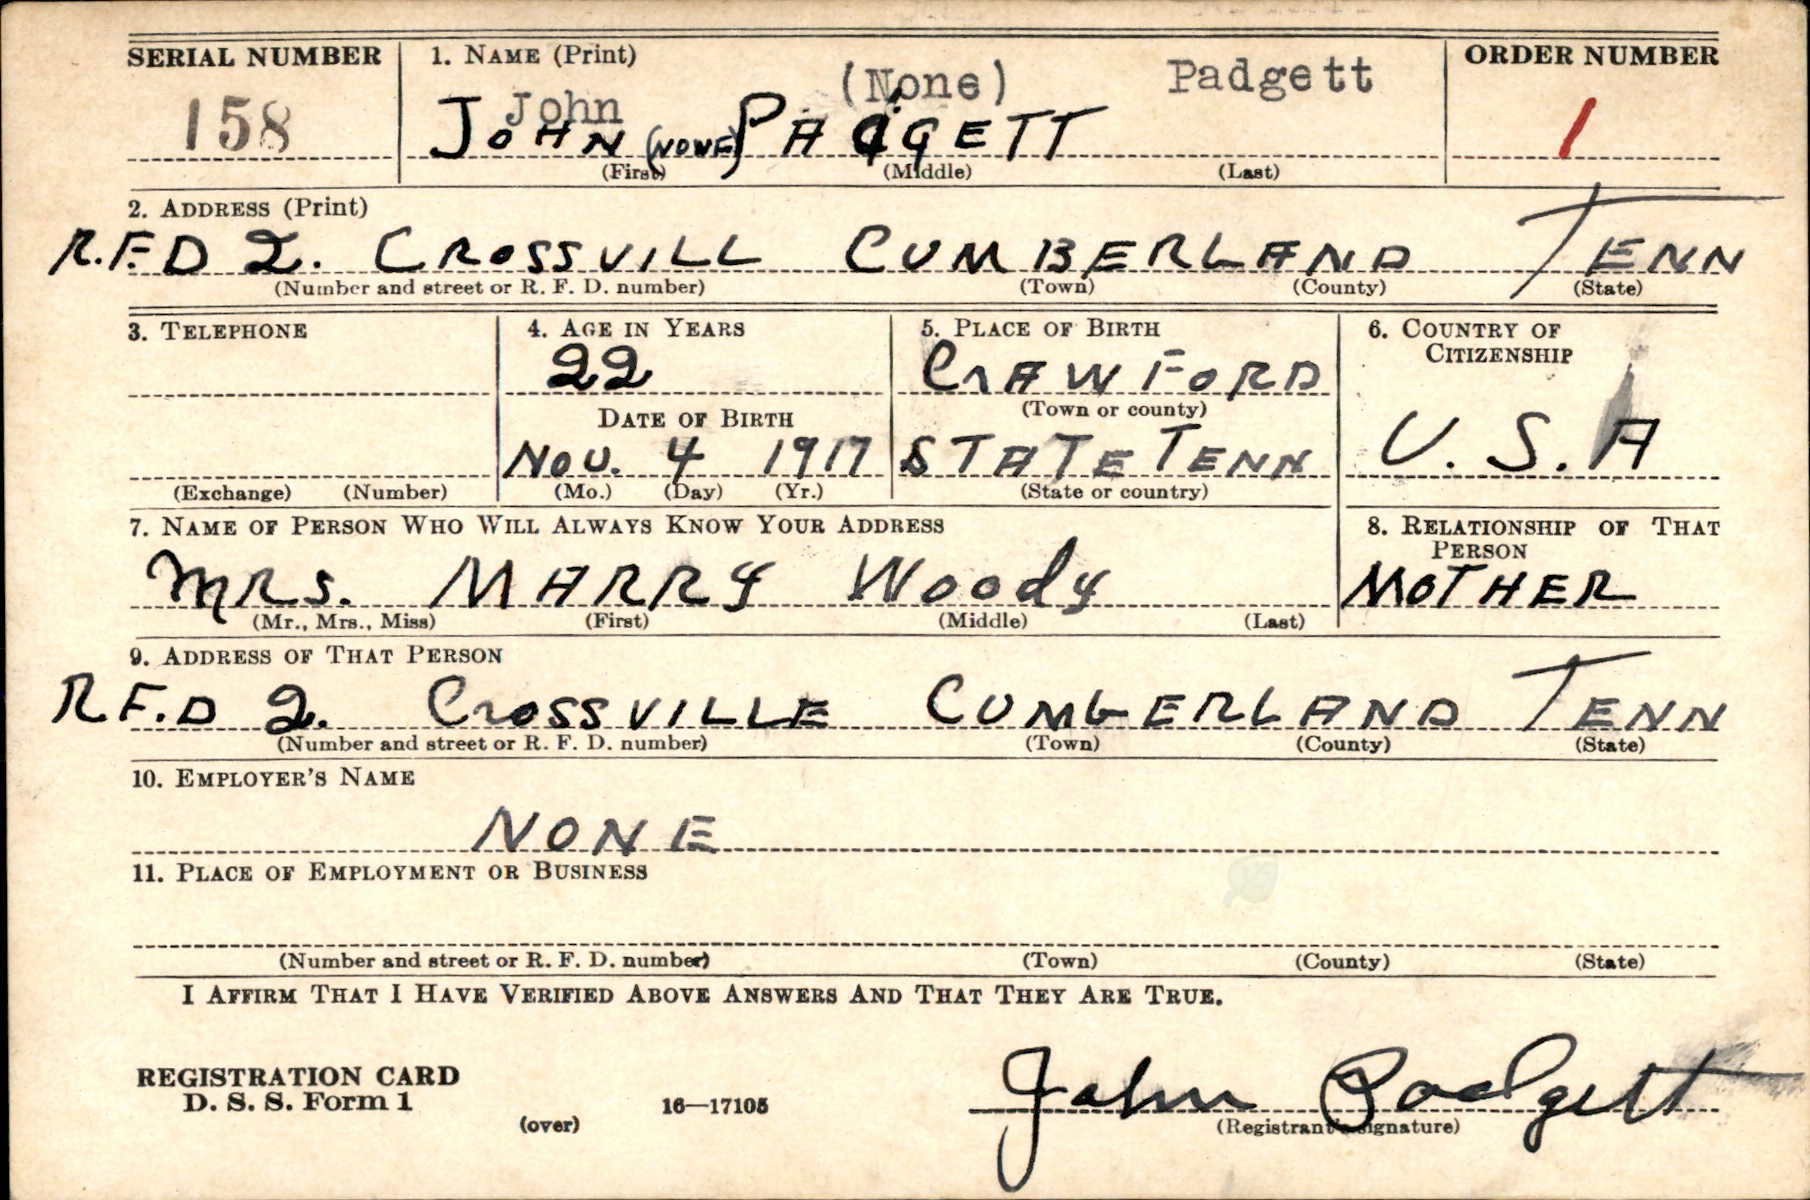 SERIAL NUMBER 1. NAME (Print) ORDER NUMBER
John (None) Padgett
158 JOHN (NONE) PADGETT 1
(First) (Middle) (Last)
2. ADDRESS (Print)
R.F.D 2. CROSSVILL CUMBERLAND TENN
(Number and street or R. F. D. number) (Town) (County) (State)
3. TELEPHONE 4. AGE IN YEARS 5. PLACE OF BIRTH 6. COUNTRY OF CITIZENSHIP
22 CRAWFORD
DATE OF BIRTH (Town or county)
NOV. 4 1917 STATE TENN U. S. A
(Exchange) (Number) (Mo.) (Day) (Yr.) (State or country)
7. NAME OF PERSON WHO WILL ALWAYS KNOW YOUR ADDRESS 8. RELATIONSHIP OF THAT PERSON
MRS. MARRY Woody MOTHER
(Mr., Mrs., Miss) (First) (Middle) (Last)
9. ADDRESS OF THAT PERSON
R.F.D 2. CROSSVILLE CUMBERLAND TENN
(Number and street or R. F. D. number) (Town) (County) (State)
10. EMPLOYER'S NAME
NONE
11. PLACE OF EMPLOYMENT OR BUSINESS
(Number and street or R. F. D. number) (Town) (County) (State)
I AFFIRM THAT I HAVE VERIFIED ABOVE ANSWERS AND THAT THEY ARE TRUE.
REGISTRATION CARD
D. S. S. Form 1
(over) 16—17105
John Padgett
(Registrant's signature)